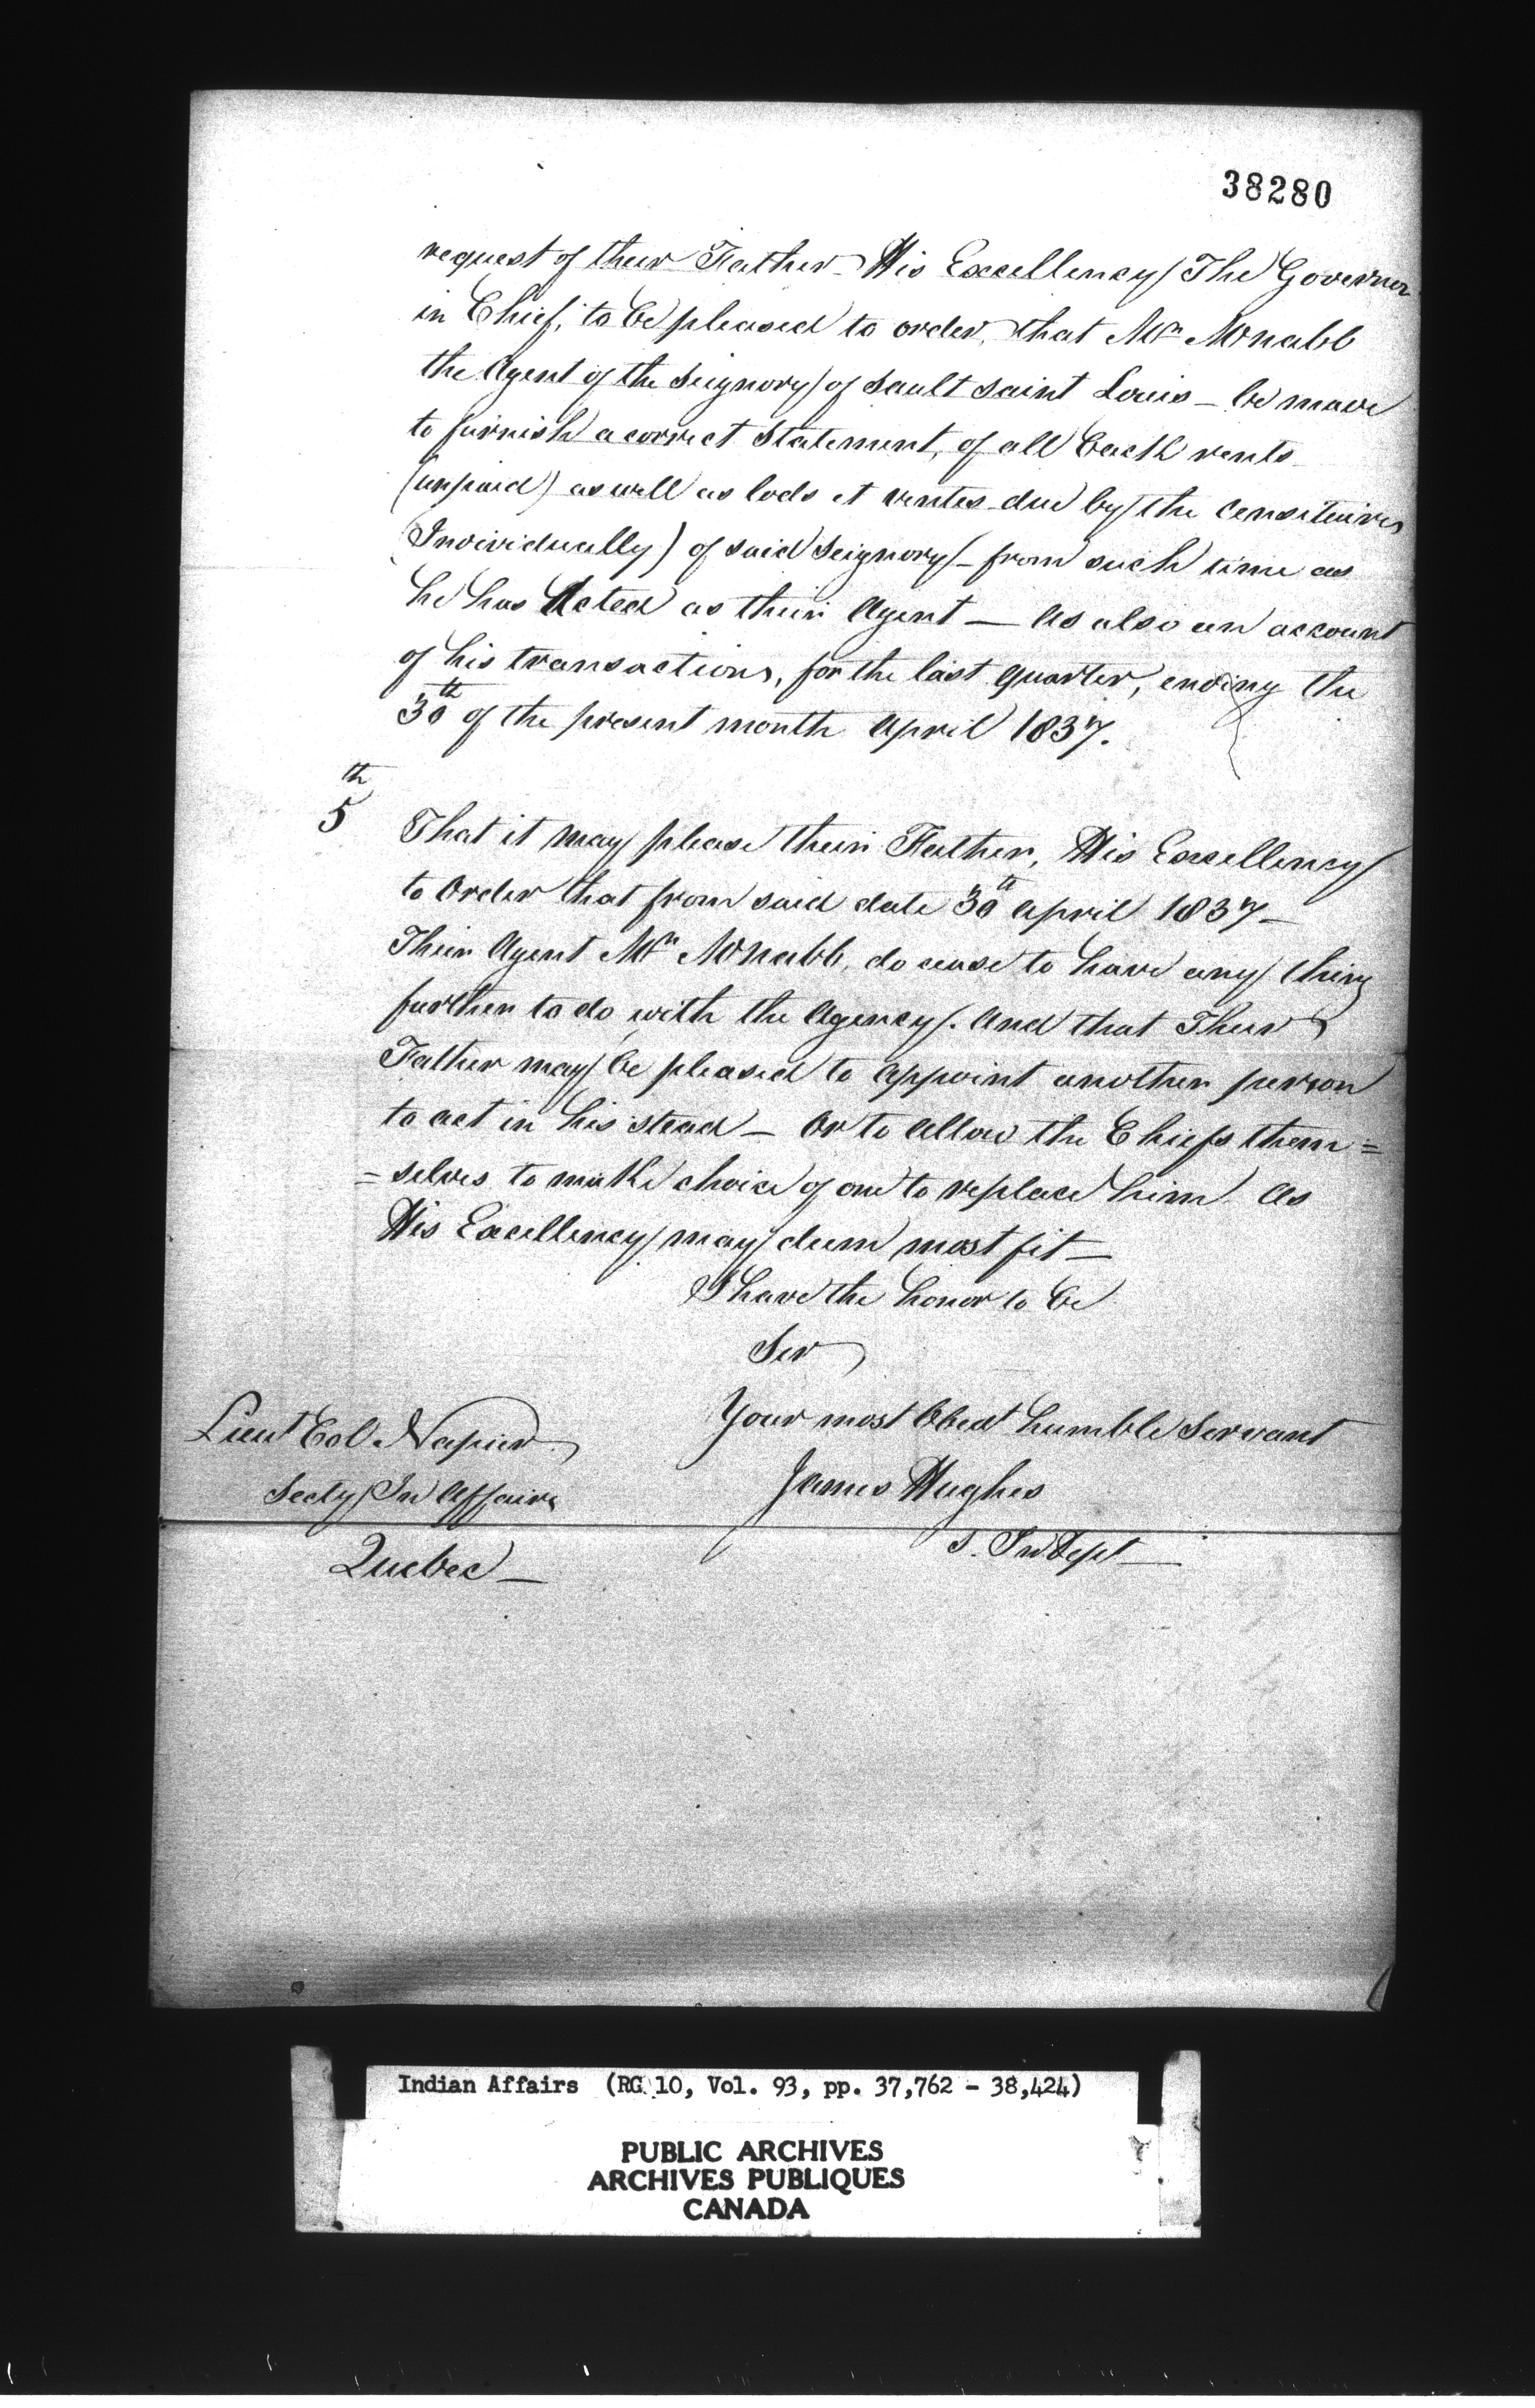 38280
request of their Father His Excellency The Governor
in Chief, to be pleased to order, that Mr McNabb
the Agent of the Seignory of Sault Saint Louis – be made
to furnish a correct Statement, of all back rents
(unpaid) as well as lods et ventes due by the Censitaires
(Individually) of said Seignory – from such time as
he has Acted as their Agent — As also an account
of his transactions, for the last quarter, ending the
30th of the present month April 1837.
5th That it may please their Father, His Excellency
to Order that from said date 30th April 1837 –
Their Agent Mr McNabb, do cease to have any thing
further to do with the Agency. And that Their
Father may be pleased to appoint another person
to act in his stead – Or to allow the Chiefs them=
=selves to make choice of one to replace him As
His Excellency may deem most fit –
I have the honor to be
Sir
Your most Obedt humble Servant
James Hughes
S. In Dept —
Lieut Col Napier
Secty In Affairs
Quebec —
Indian Affairs (RG 10, Vol. 93, pp. 37,762 - 38,424)
PUBLIC ARCHIVES
ARCHIVES PUBLIQUES
CANADA